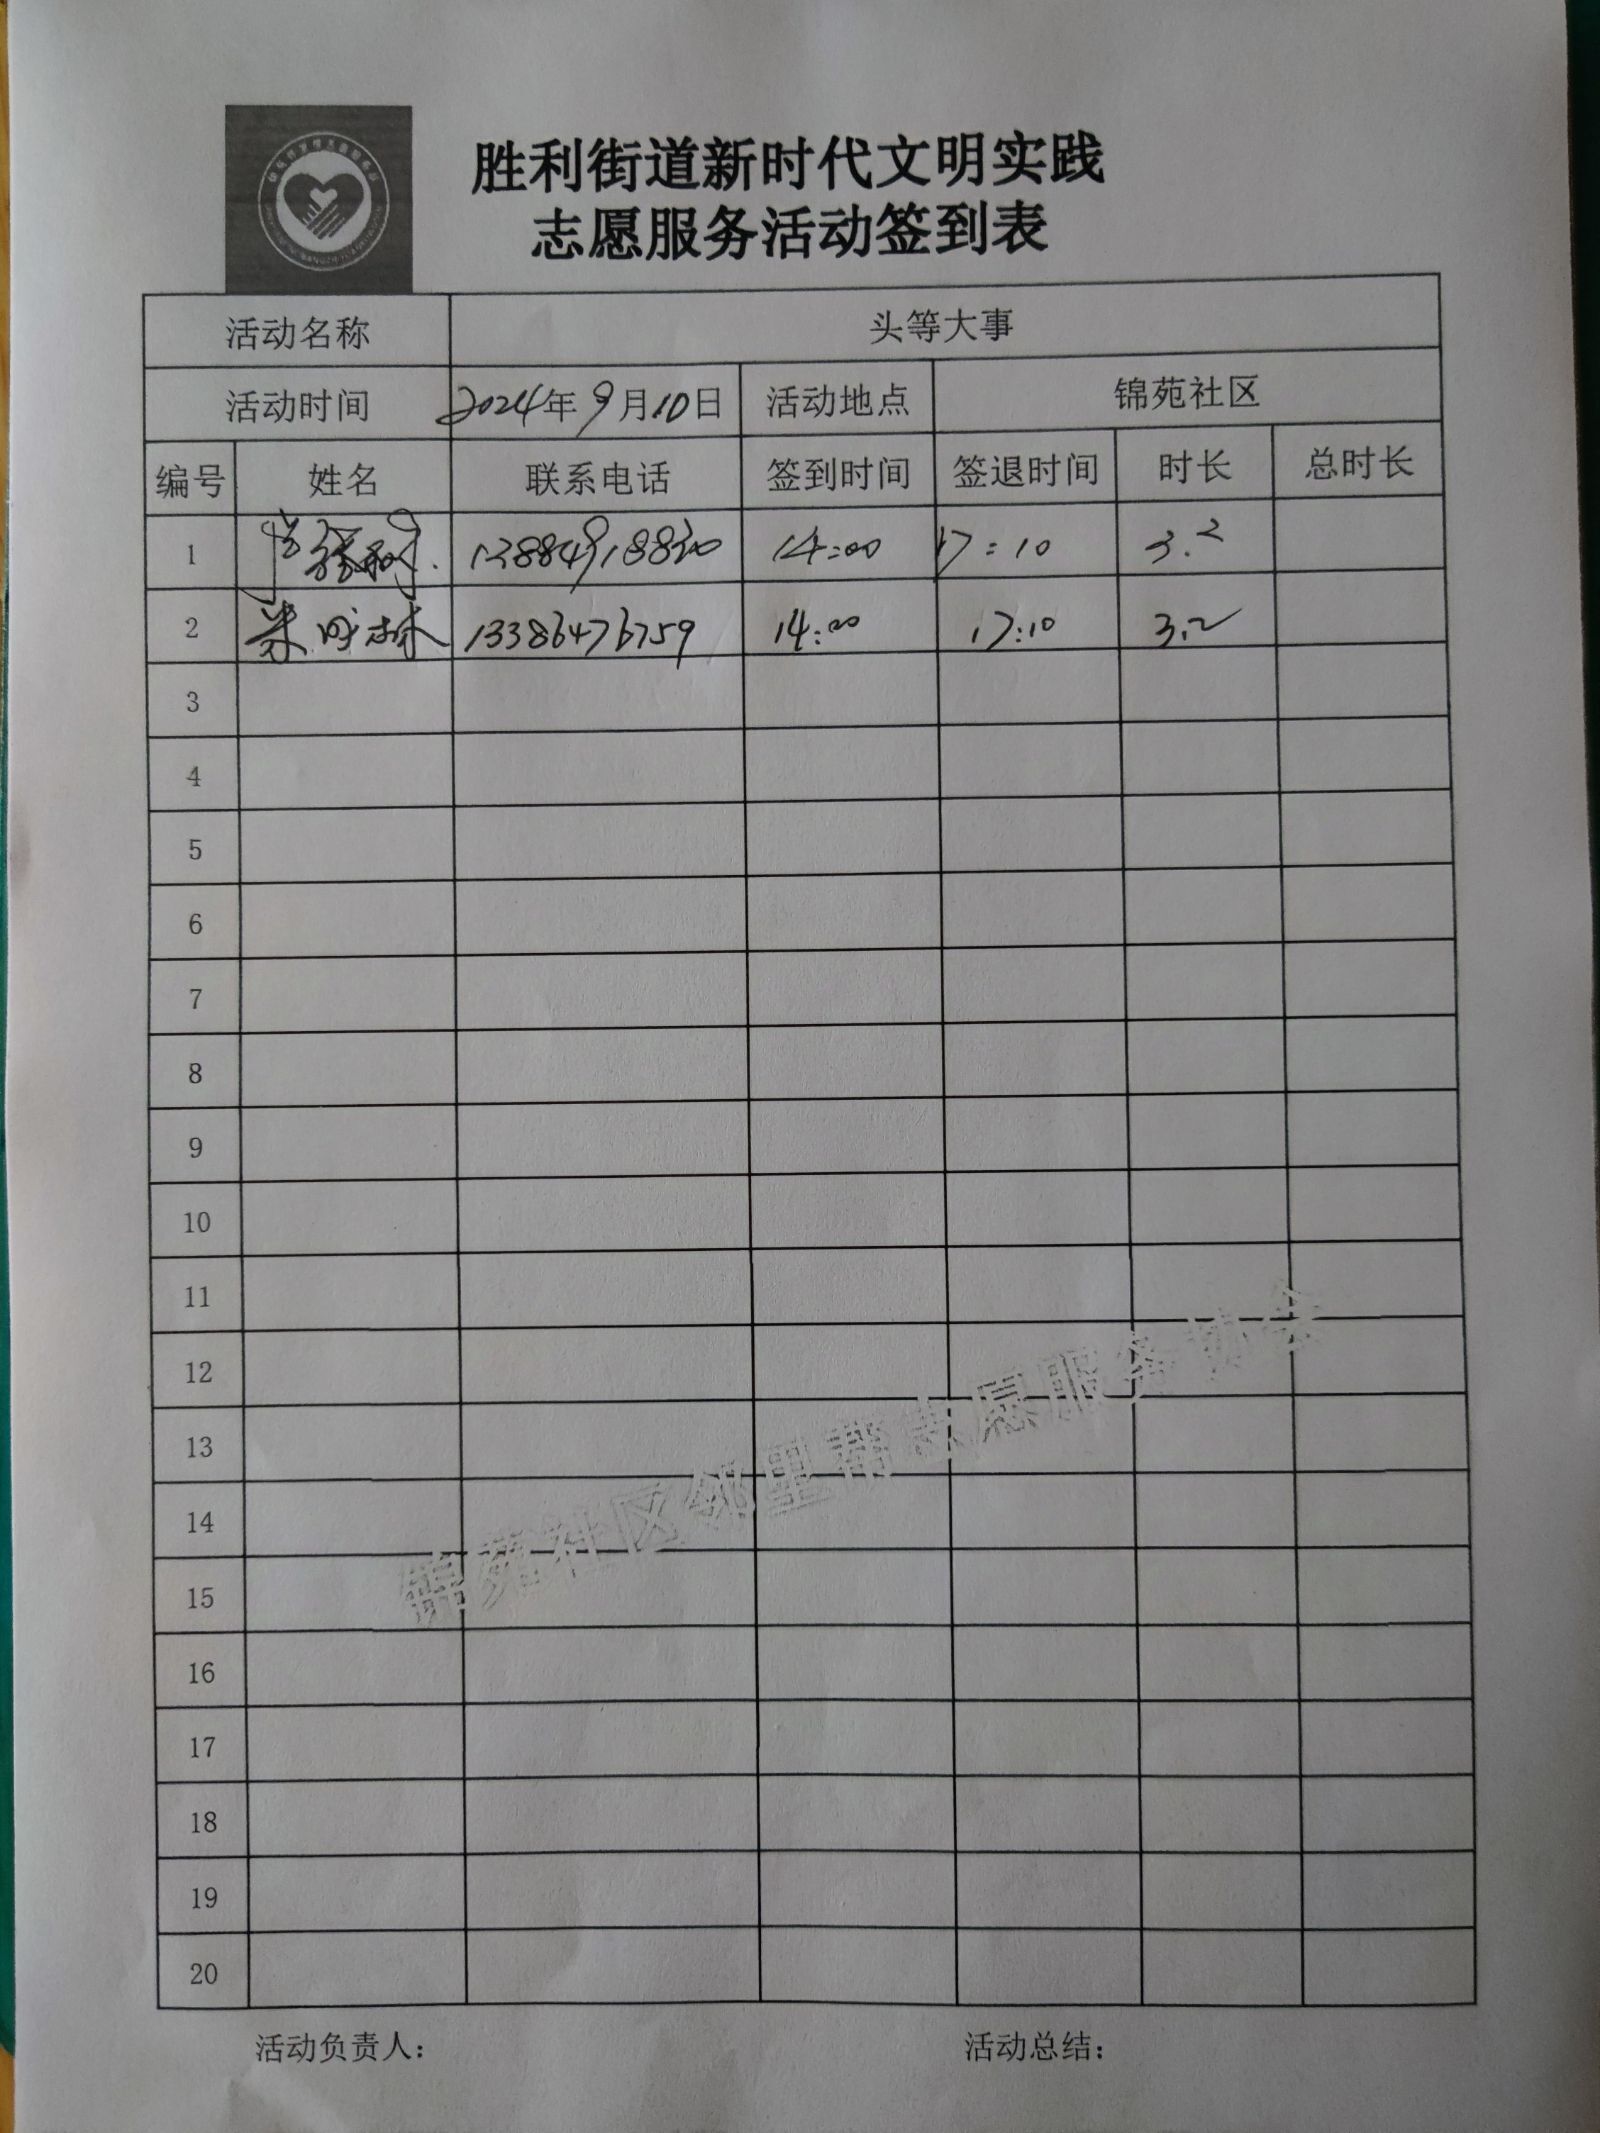 胜利街道新时代文明实践
志愿服务活动签到表
活动名称 头等大事
活动时间 2024年9月10日 活动地点 锦苑社区
编号 姓名 联系电话 签到时间 签退时间 时长 总时长
1 13884918830 14:00 17:10 3.2
2 13386476759 14:00 17:10 3.2
3
4
5
6
7
8
9
10
11
12
13
14
15
16
17
18
19
20
锦苑社区邻里帮志愿服务协会
活动负责人: 活动总结: